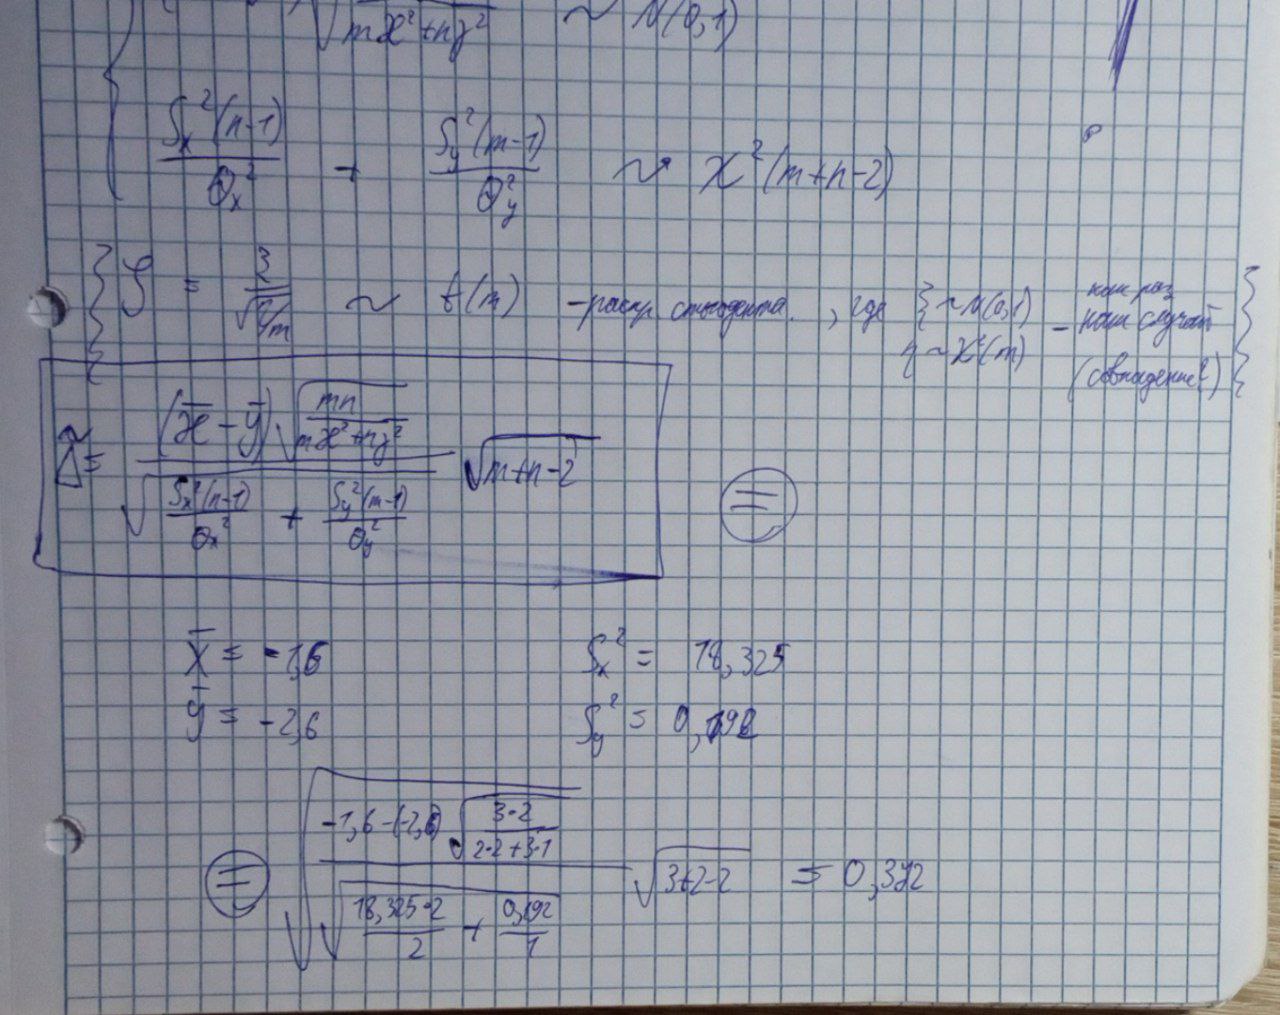 √(/(mx²+ny²)) ~ N(0,1)
Sx²(n-1)/θx² + Sy²(m-1)/θy² ~ χ²(m+n-2)
= 3/√(/m) ~ t(m) - распр. стьюдента, где ξ ~ N(0,1) - как раз
η ~ χ²(m) наш случай
(совпадение?)
Δ̃ = (x̄ - ȳ)√(mn/(mx²+ny²)) / √(Sx²(n-1)/θx² + Sy²(m-1)/θy²) √(m+n-2) =
x̄ = -1,6 Sx² = 18,325
ȳ = -2,6 Sy² = 0,192
= √(-1,6-(-2,6)√(3·2/(2·2+3·1)) / √(18,325·2/2 + 0,192/1)) √(3+2-2) = 0,372